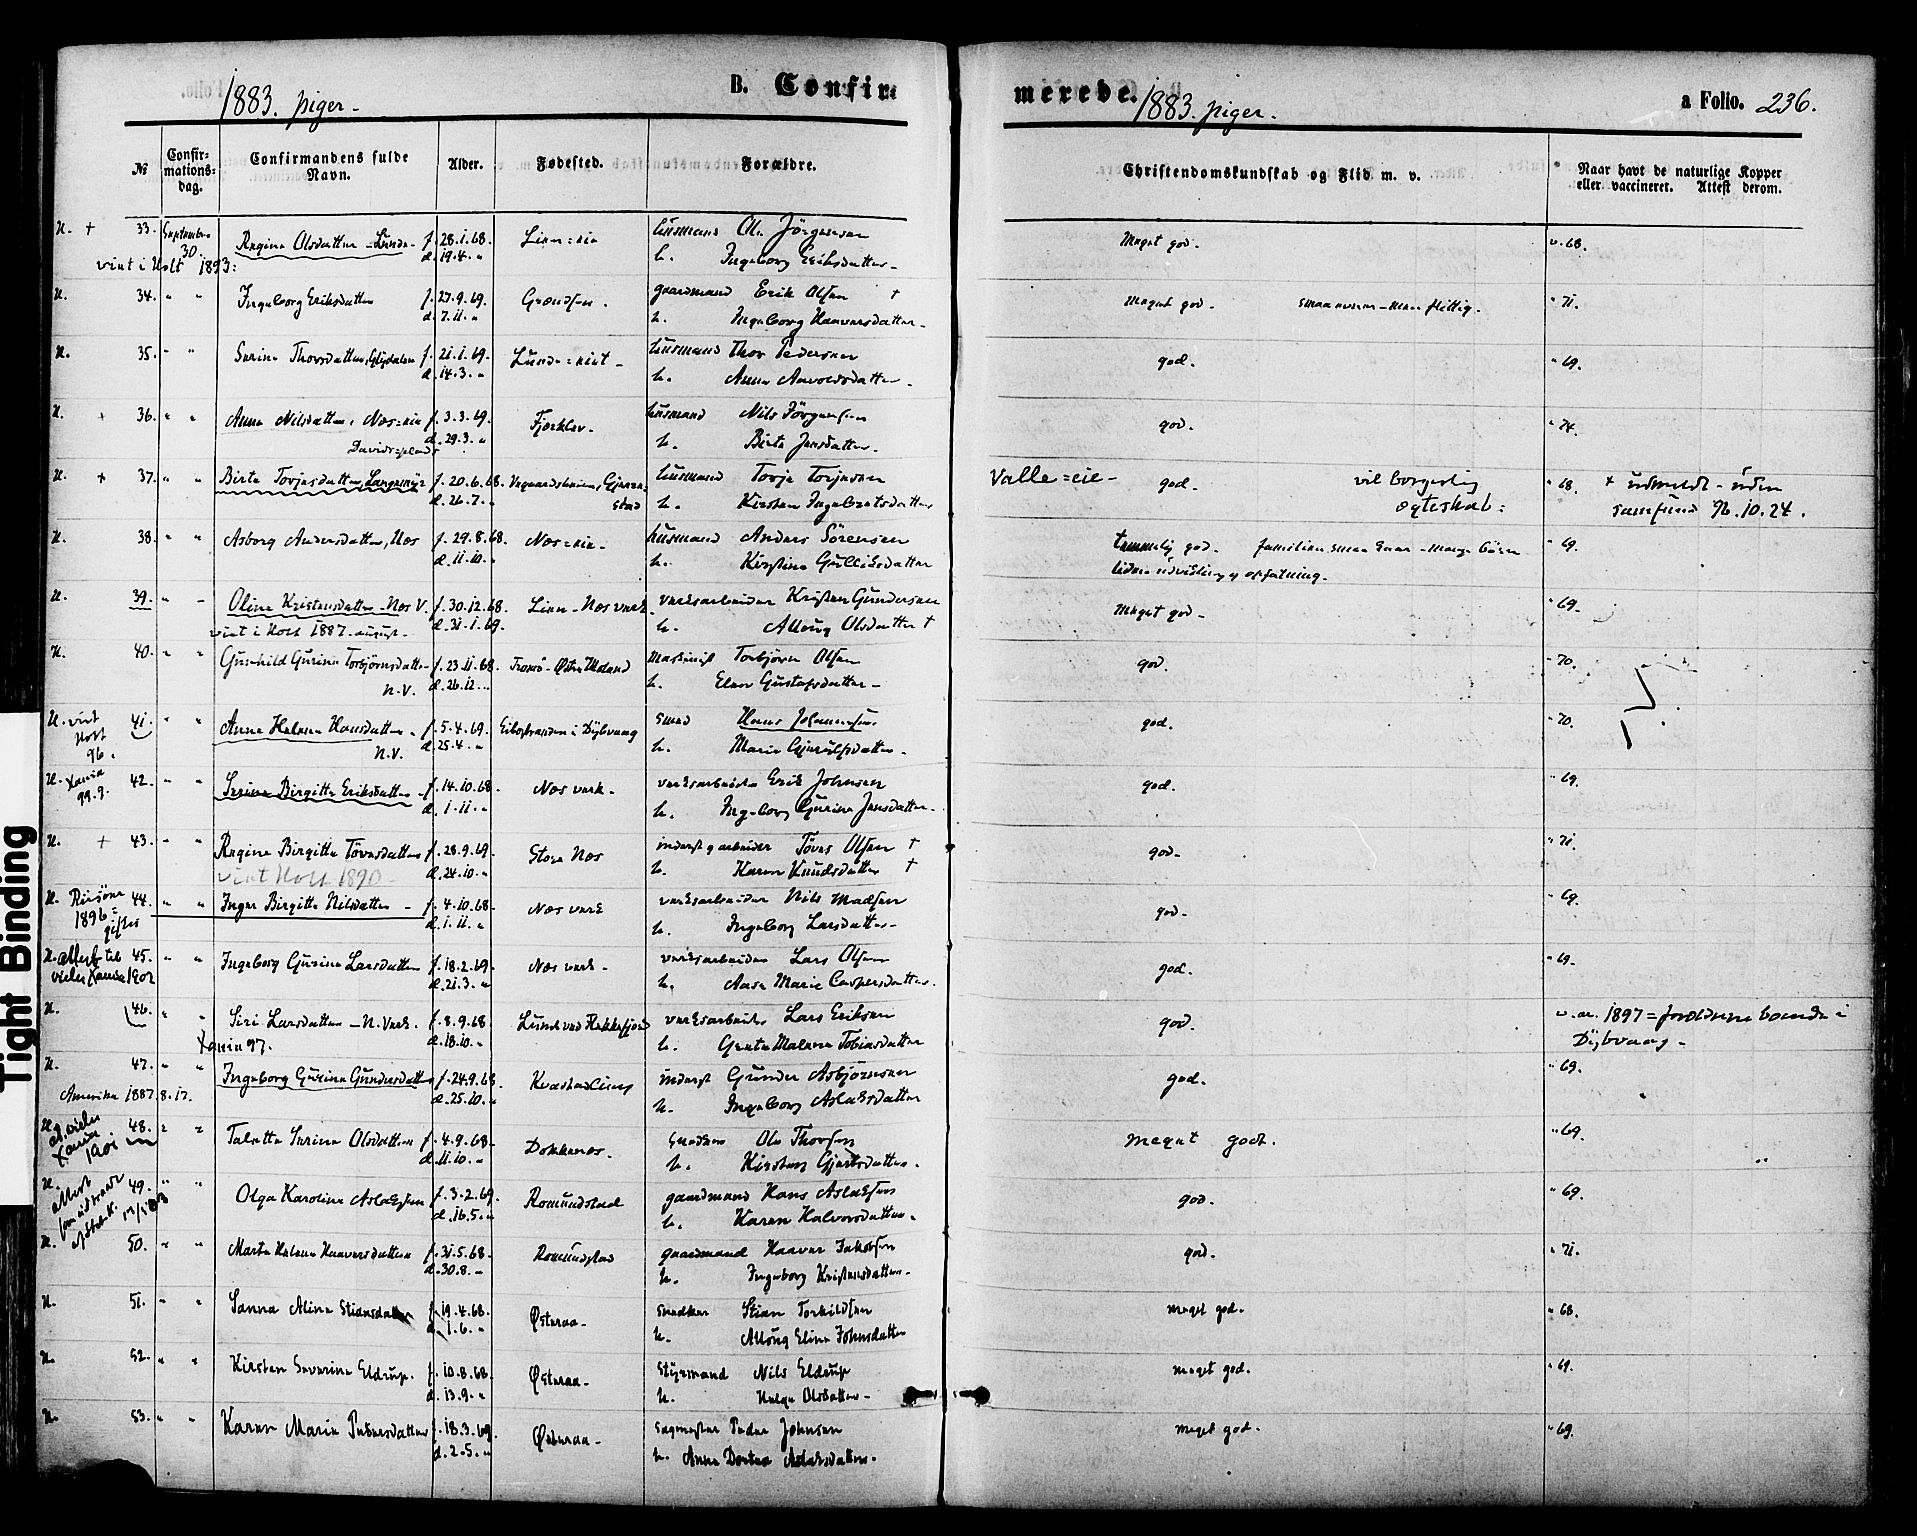 1883. piger.
B. Confir
merede.
1883. piger.
a Folio. 236.
№
Confir-
mations-
dag.
Confirmandens fulde
Navn.
Alder.
Fødested.
Forældre.
Christendomskundskab og Flid m. v.
Naar havt de naturlige Kopper
eller vaccineret. Attest derom.
N. + 33. September Regine Olsdatter - Lunde - f. 28.1.68. husmand Ole Jörgensen Meget god. v. 68.
30. d. 19.4. „ h. Ingeborg Eriksdatter -
viet i Holt 1893:
N. 34. „ „ Ingeborg Eriksdatter f. 27.9.69. Grændsen. gaardmand Erik Olsen + Meget god. „ 71.
d. 7.11. „ h. Ingeborg Haaversdatter.
N. 35. „ „ Serine Thorsdatter, f. 21.1.69. Lunde=eiet - husmand Thor Pedersen god. „ 69.
d. 14.3. „ h. Anne Aavoldsdatter.
N. + 36. „ „ Anne Nilsdatter, Næs=eie f. 3.3.69. Fjærklev. husmand Nils Jörgensen god. „ 74.
Davidsplads d. 29.3. „ h. Birte Jensdatter.
N. + 37. „ „ Birte Torjusdatter, f. 20.6.68. husmand Torje Torjusen Valle=eie - god. vil borgerlig „ 68. + udmeldt - uden
d. 26.7. „ h. Kirsten Ingebretsdatter ægteskab: samfund 96.10.24.
N. 38. „ „ Asborg Andersdatter, Næs f. 29.8.68. Næs=eie. husmand Anders Sörensen temmelig god. „ 69.
d. 11.10. „ h. Kirstine Gulliksdatter liden udvikling og opfatning.
N. 39. „ „ Oline Kristensdatter - Næs V. f. 30.12.68. Lien - Næs verk verksarbeider Kristen Gundersen Meget god - „ 69.
viet i Holt 1887. august. d. 31.1.69. h. Alloug Olsdatter +
N. 40. „ „ Gunhild Gurine Torbjörnsdatter f. 23.11.68. Tromö - Østre Moland Maskinist Torbjörn Olsen god. „ 70.
N.V. d. 26.12. „ h. Elen Gustafsdatter -
N. viet 41. „ „ Anne Helene Hansdatter. f. 5.4.69. i Dybvaag smed Hans Johannesen god. „ 70.
Holt N.V. d. 25.4. „ h. Marie datter.
96.
N. Xania 42. „ „ Serine Birgitte Eriksdatter - f. 14.10.68. Næs verk. verksarbeider Erik Johnsen god. „ 69.
99.9. d. 1.11. „ h. Ingeborg Gurine Jensdatter.
N. + 43. „ „ Regine Birgitte Tövesdatter f. 28.9.69. Store Næs inderst g arbeider Töves Olsen + god. „ 71.
viet Holt 1890. d. 24.10. „ h. Karen Knudsdatter +
N. Risöer 44. „ „ Inger Birgitte Nilsdatter - f. 4.10.68. Næs verk verksarbeider Nils Madsen god. „ 69.
1896= d. 1.11. „ h. Ingeborg Larsdatter -
giftes
N. Attest til 45. „ „ Ingeborg Gurine Larsdatter f. 18.2.69. Næs verk. verksarbeider Lars Olsen god. „ 69.
vielse Xania 1902 d. 21.3. „ h. Aase Marie Caspersdatter.
N. 46. „ „ Siri Larsdatter - N. Verk. f. 8.9.68. Lunde ved Flekkefjord verksarbeider Lars Eriksen god. v. at. 1897 = forældrene boende i
Xania 97. d. 18.10. „ h. Grete Malene Tobiasdatter Dybvaag -
N. 47. „ „ Ingeborg Gurine Gundersdatter f. 24.9.68. inderst Gunder Asbjörnsen god. „ 69.
Amerika 1887.8.17. d. 25.10. „ h. Ingeborg Aslaksdatter
N. 48. „ „ Talette Serine Olsdatter f. 4.9.68. Dokkenæs. Ole Thorsen meget godt. „ 69.
at. vielse d. 11.10. „ h. Kirsten Gjertsdatter.
Xania
1901
N. 49. „ „ Olga Karoline Aslaksen f. 3.2.69. Romundstad gaardmand Hans Aslaksen god. „ 69.
attest d. 16.5. „ h. Karen Halvorsdatter.
N. 50. „ „ Marte Helene Haaversdatter f. 31.5.68. Romundstad gaardmand Haaver Jakobsen god. „ 71.
d. 30.8. „ h. Ingeborg Kristensdatter.
N. 51. „ „ Sanna Aline Stiansdatter f. 19.4.68. Østeraa - snedker Stian Torkildsen meget god. „ 68.
d. 1.6. „ h. Alloug Eline Johnsdatter
N. 52. „ „ Kirsten Severine Eldrup. f. 10.8.68. Østeraa - Styrmand Nils Eldrup meget god. „ 69.
d. 13.9. „ h. Helga Olsdatter -
N. 53. „ „ Karen Marie Pedersdatter f. 18.3.69. Østeraa - Sagmester Peder Johnsen meget god. „ 69.
d. 2.5. „ h. Anne Dortea Aslaksdatter.
Tight Binding